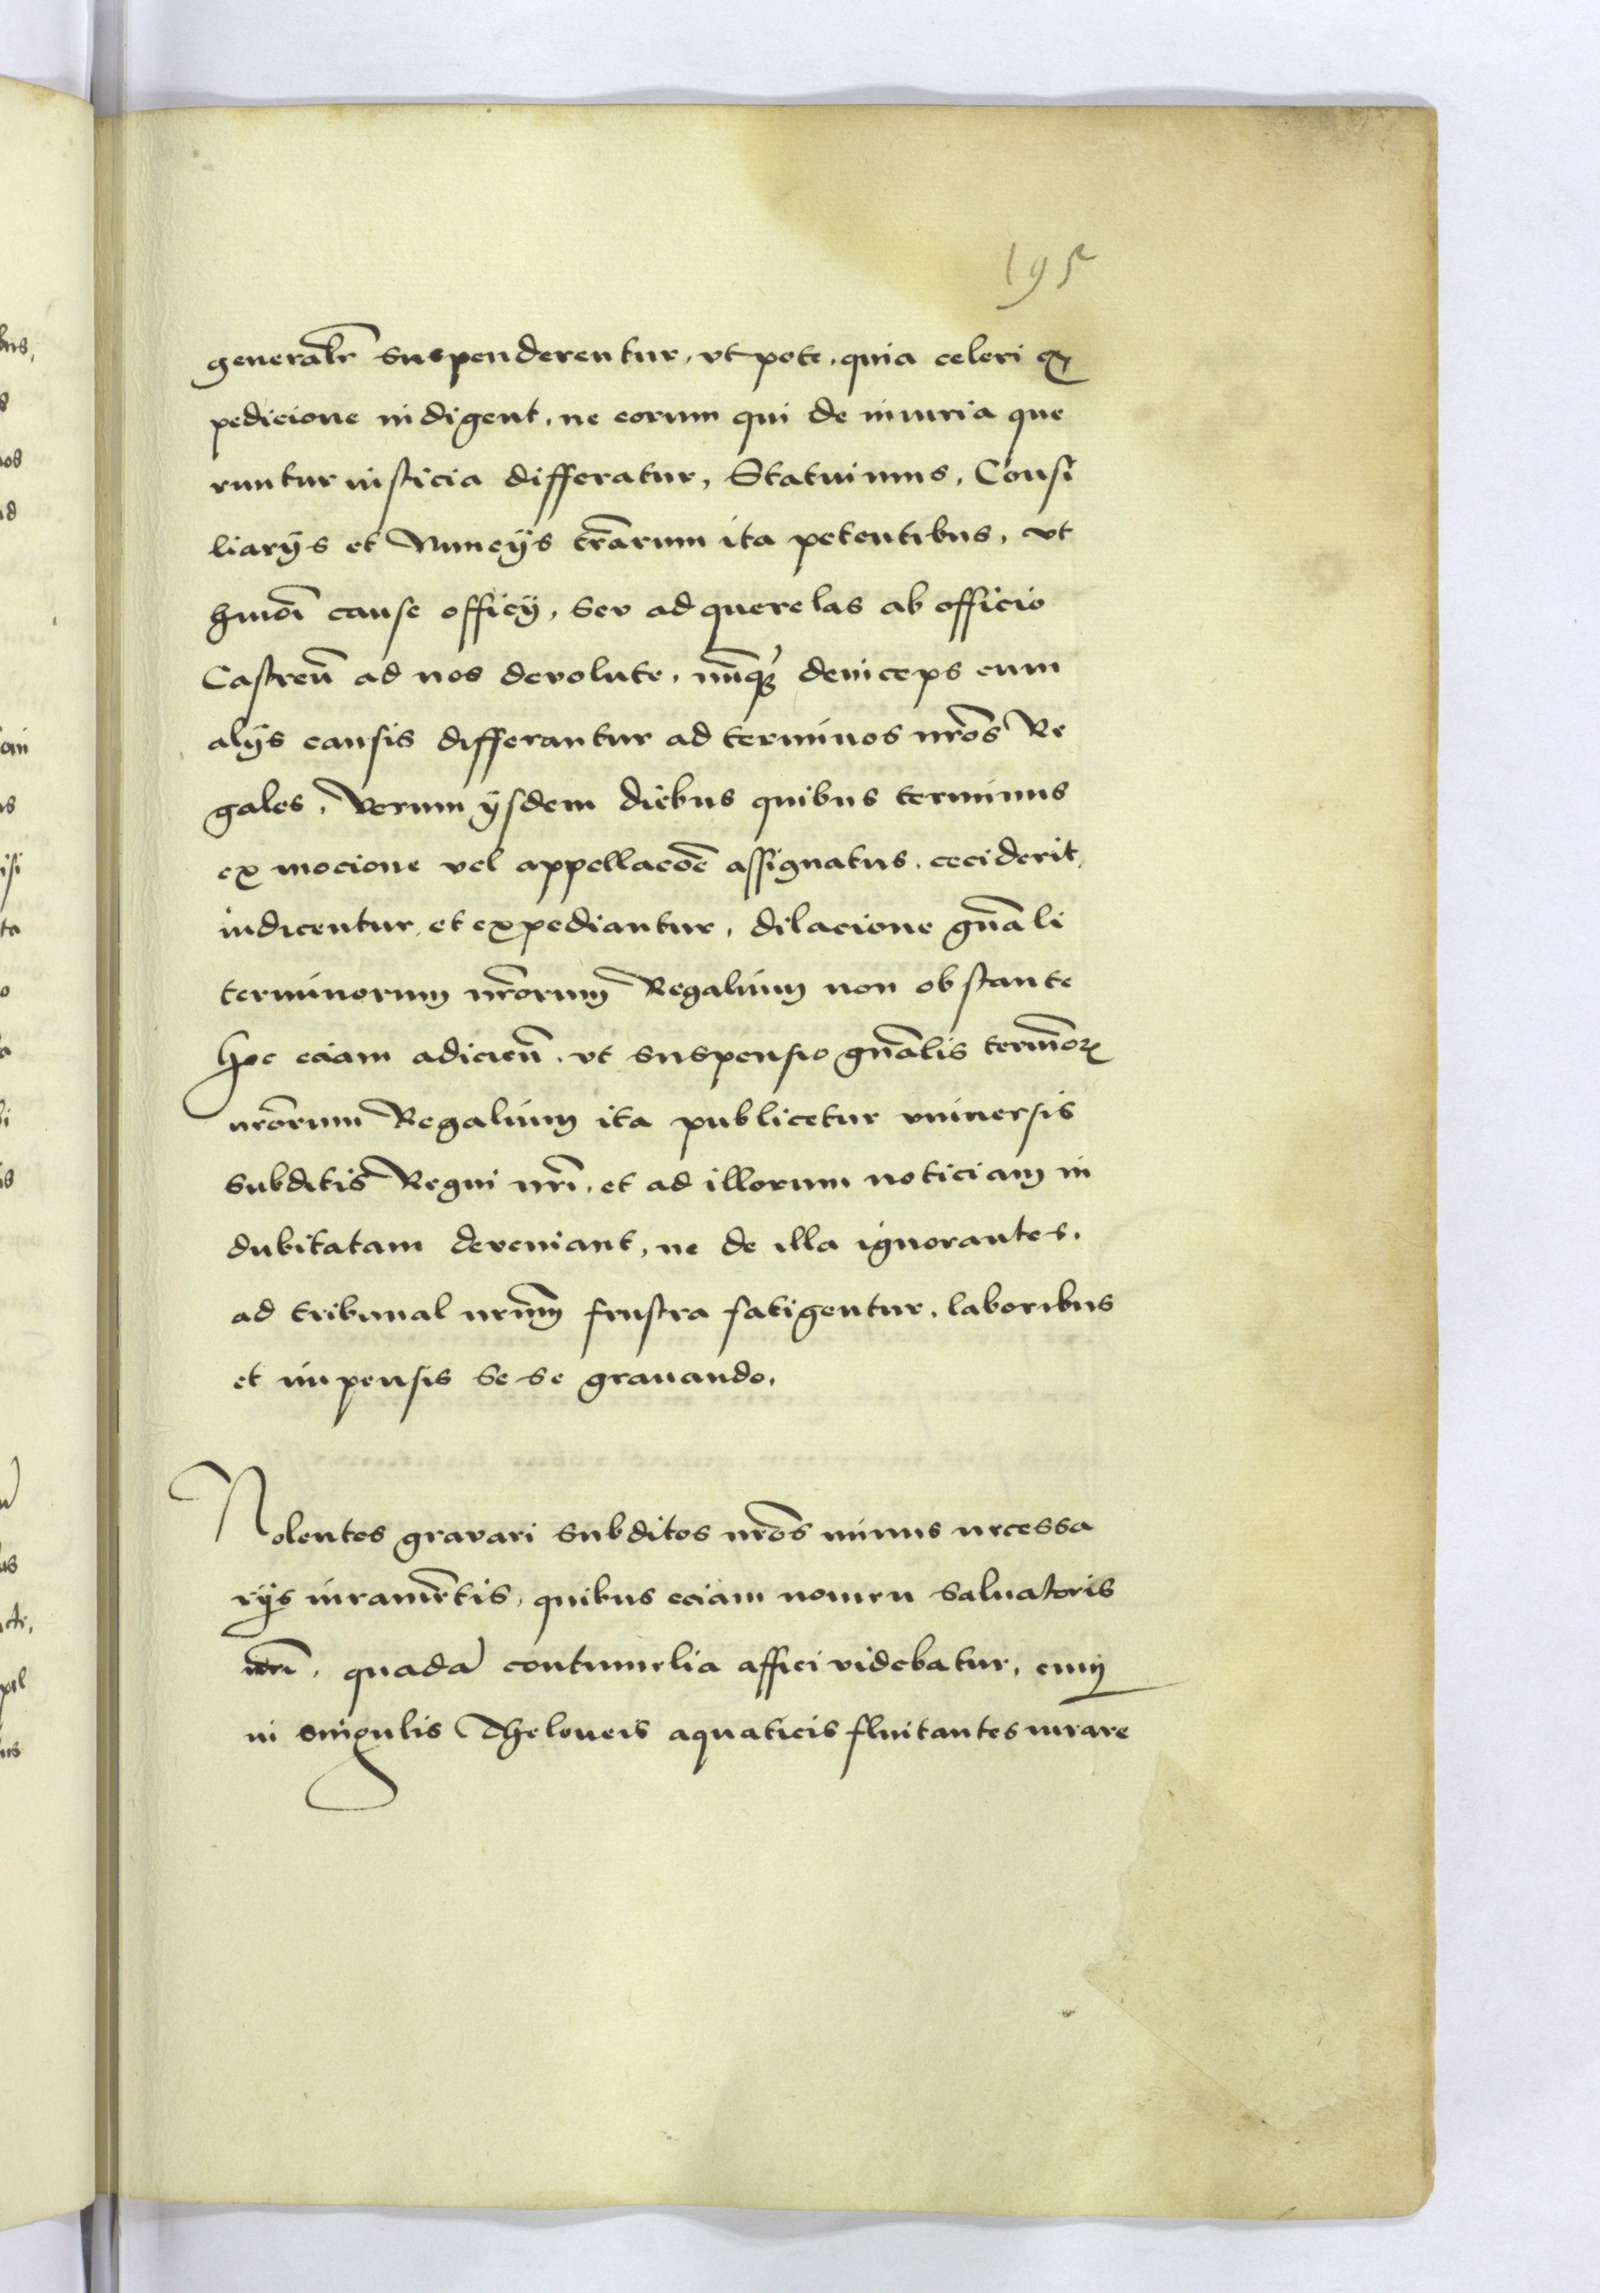 195
generalr̄ suspenderentur, vt pote, quia celeri ex
pedicione indigent, ne eorum qui de iniuria que
runtur iusticia differatur, Statuimus, Consi
liarijs et Nuncijs tr̄arum ita petentibus, vt
hmōi cause officij, seu ad querelas ab officio
Castreñ ad nos devolute, deinceps cum
alijs causis differantur ad terminos nr̄os Re
gales, Verum ijsdem diebus quibus terminus
ex mocione vel appellacōe assignatus, ceciderit,
iudicentur, et expediantur, dilacione gn̄ali
terminorum nr̄orum Regalium non obstante
Hoc eciam adicieñ, vt suspensio gn̄alis termīorꝝ
nr̄orum Regalium ita publicetur vniuersis
subditis Regni nr̄i, et ad illorum noticiam in
dubitatam deveniant, ne de illa ignorantes,
ad tribunal nr̄um frustra fatigentur, laboribus
et impensis se se grauando,
Nolentes gravari subditos nr̄os minus necessa
rijs iuramēntis, quibus eciam nomen Saluatoris
nr̄i, quadā contumelia affici videbatur, cum
in singulis Theloneis aquaticis fluitantes iurare